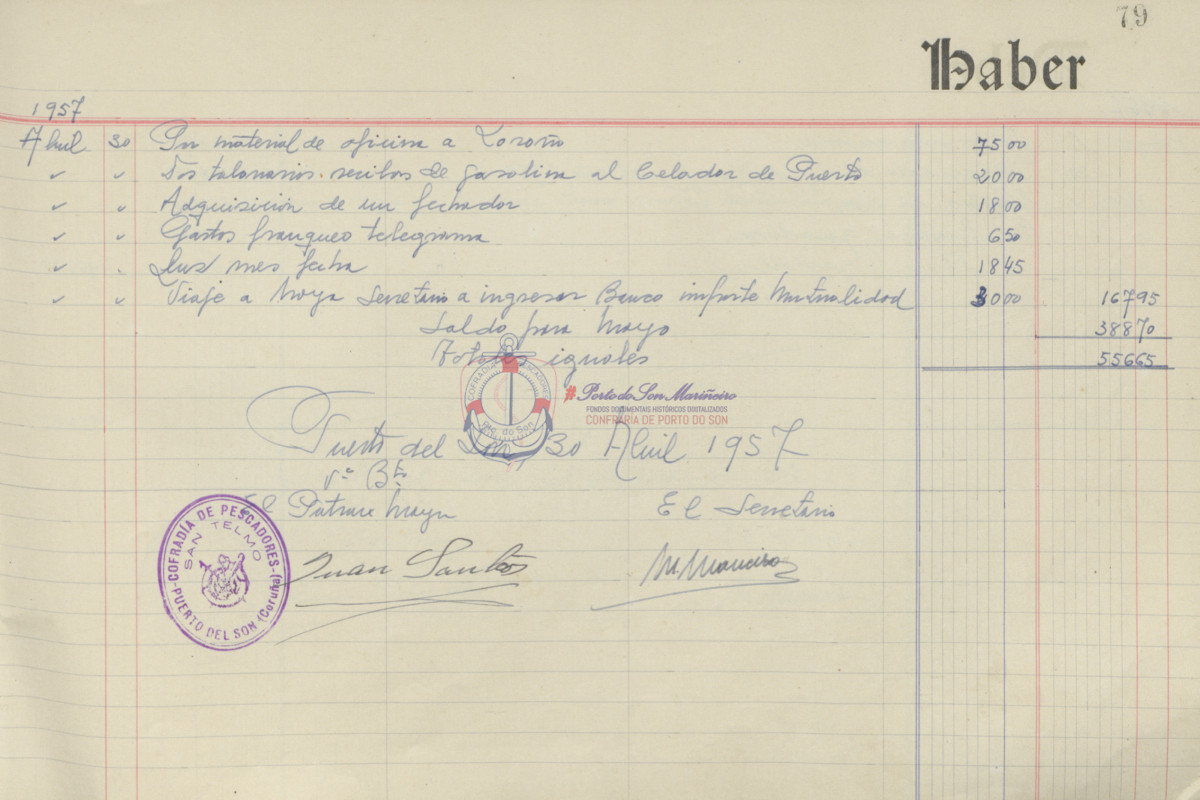 79
Haber
1957
Abril 30 Por material de oficina a Loroño 75 00
" " Dos talonarios recibos de gasolina al Celador de Puerto 20 00
" " Adquisición de un fechador 18 00
" " Gastos franqueo telegrama 6 50
" " Luz mes fecha 18 45
" " Viaje a Noya Secretario a ingresar Banco importe Mutualidad 30 00 167 95
Saldo para Mayo 388 70
Totales iguales 556 65
COFRADÍA PESCADORES
Pto. do Son
#Porto do Son Mariñeiro
FONDOS DOCUMENTAIS HISTÓRICOS DIXITALIZADOS
CONFRARÍA DE PORTO DO SON
Puerto del Son, 30 Abril 1957
Vº Bº
El Patron Mayor El Secretario
COFRADÍA DE PESCADORES
SAN TELMO
PUERTO DEL SON (Coruña)
Juan Santos